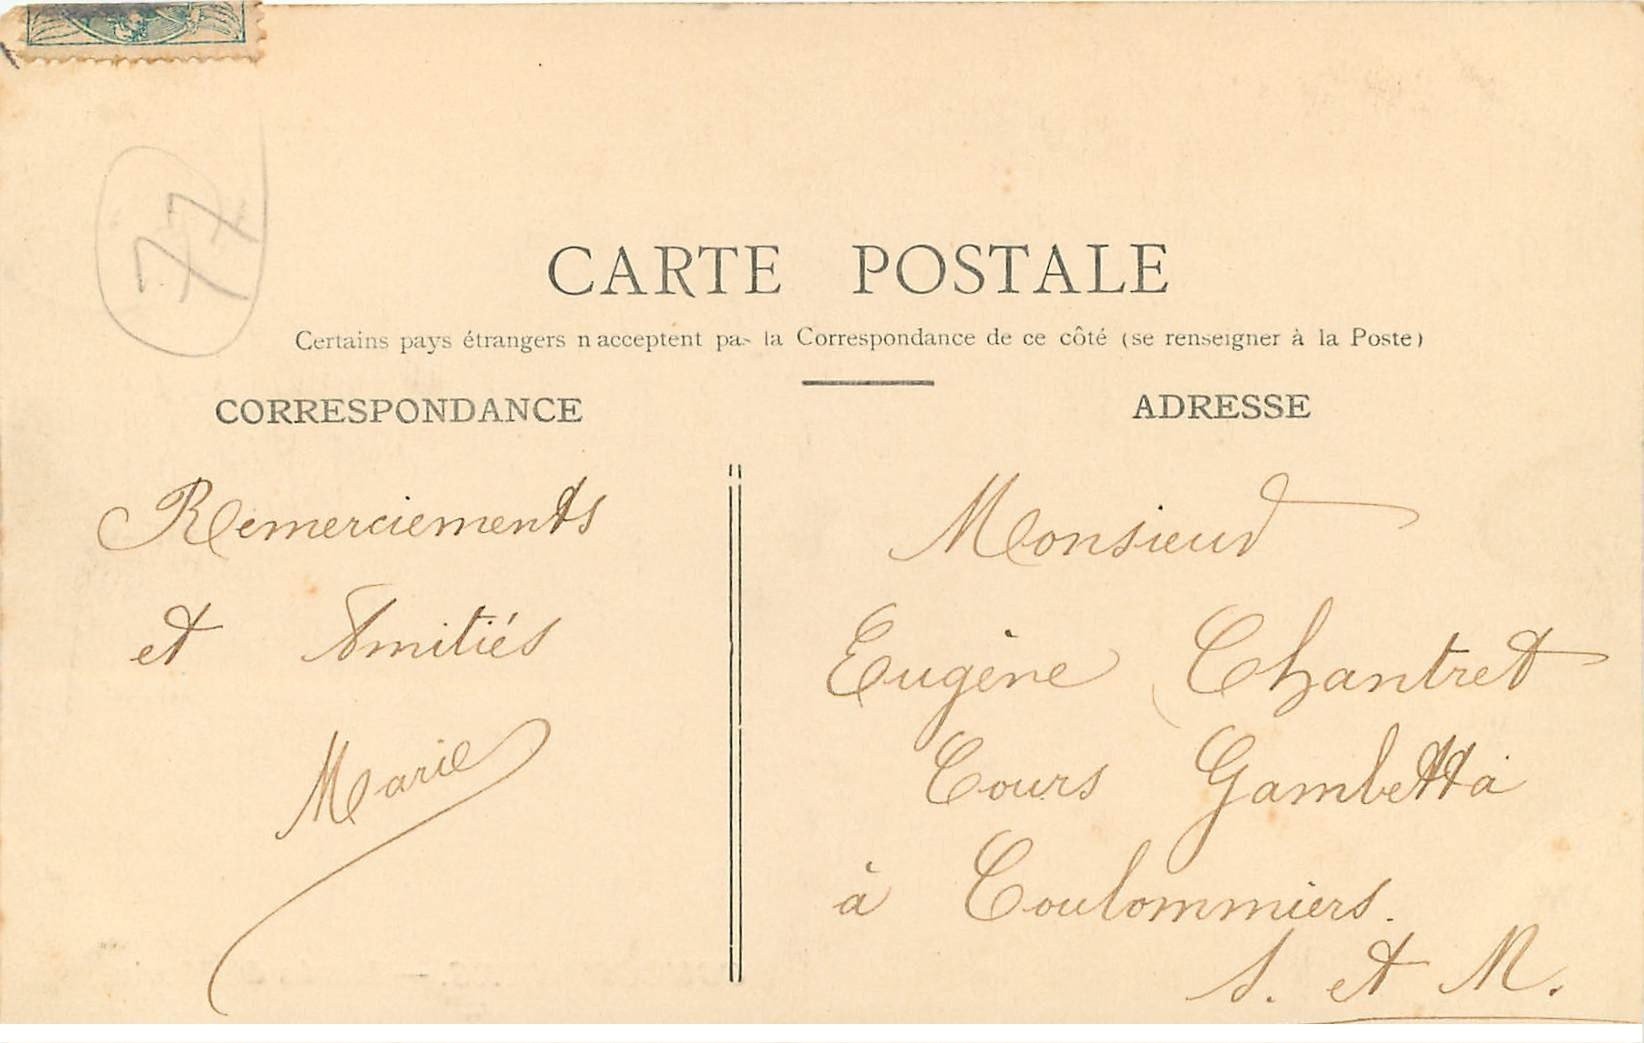 77
CARTE POSTALE
Certains pays étrangers n acceptent pas la Correspondance de ce côté (se renseigner à la Poste)
CORRESPONDANCE
Remerciements
et Amitiés
Marie
ADRESSE
Monsieur
Eugène Chantret
Cours Gambetta
à Coulommiers.
S. et M.